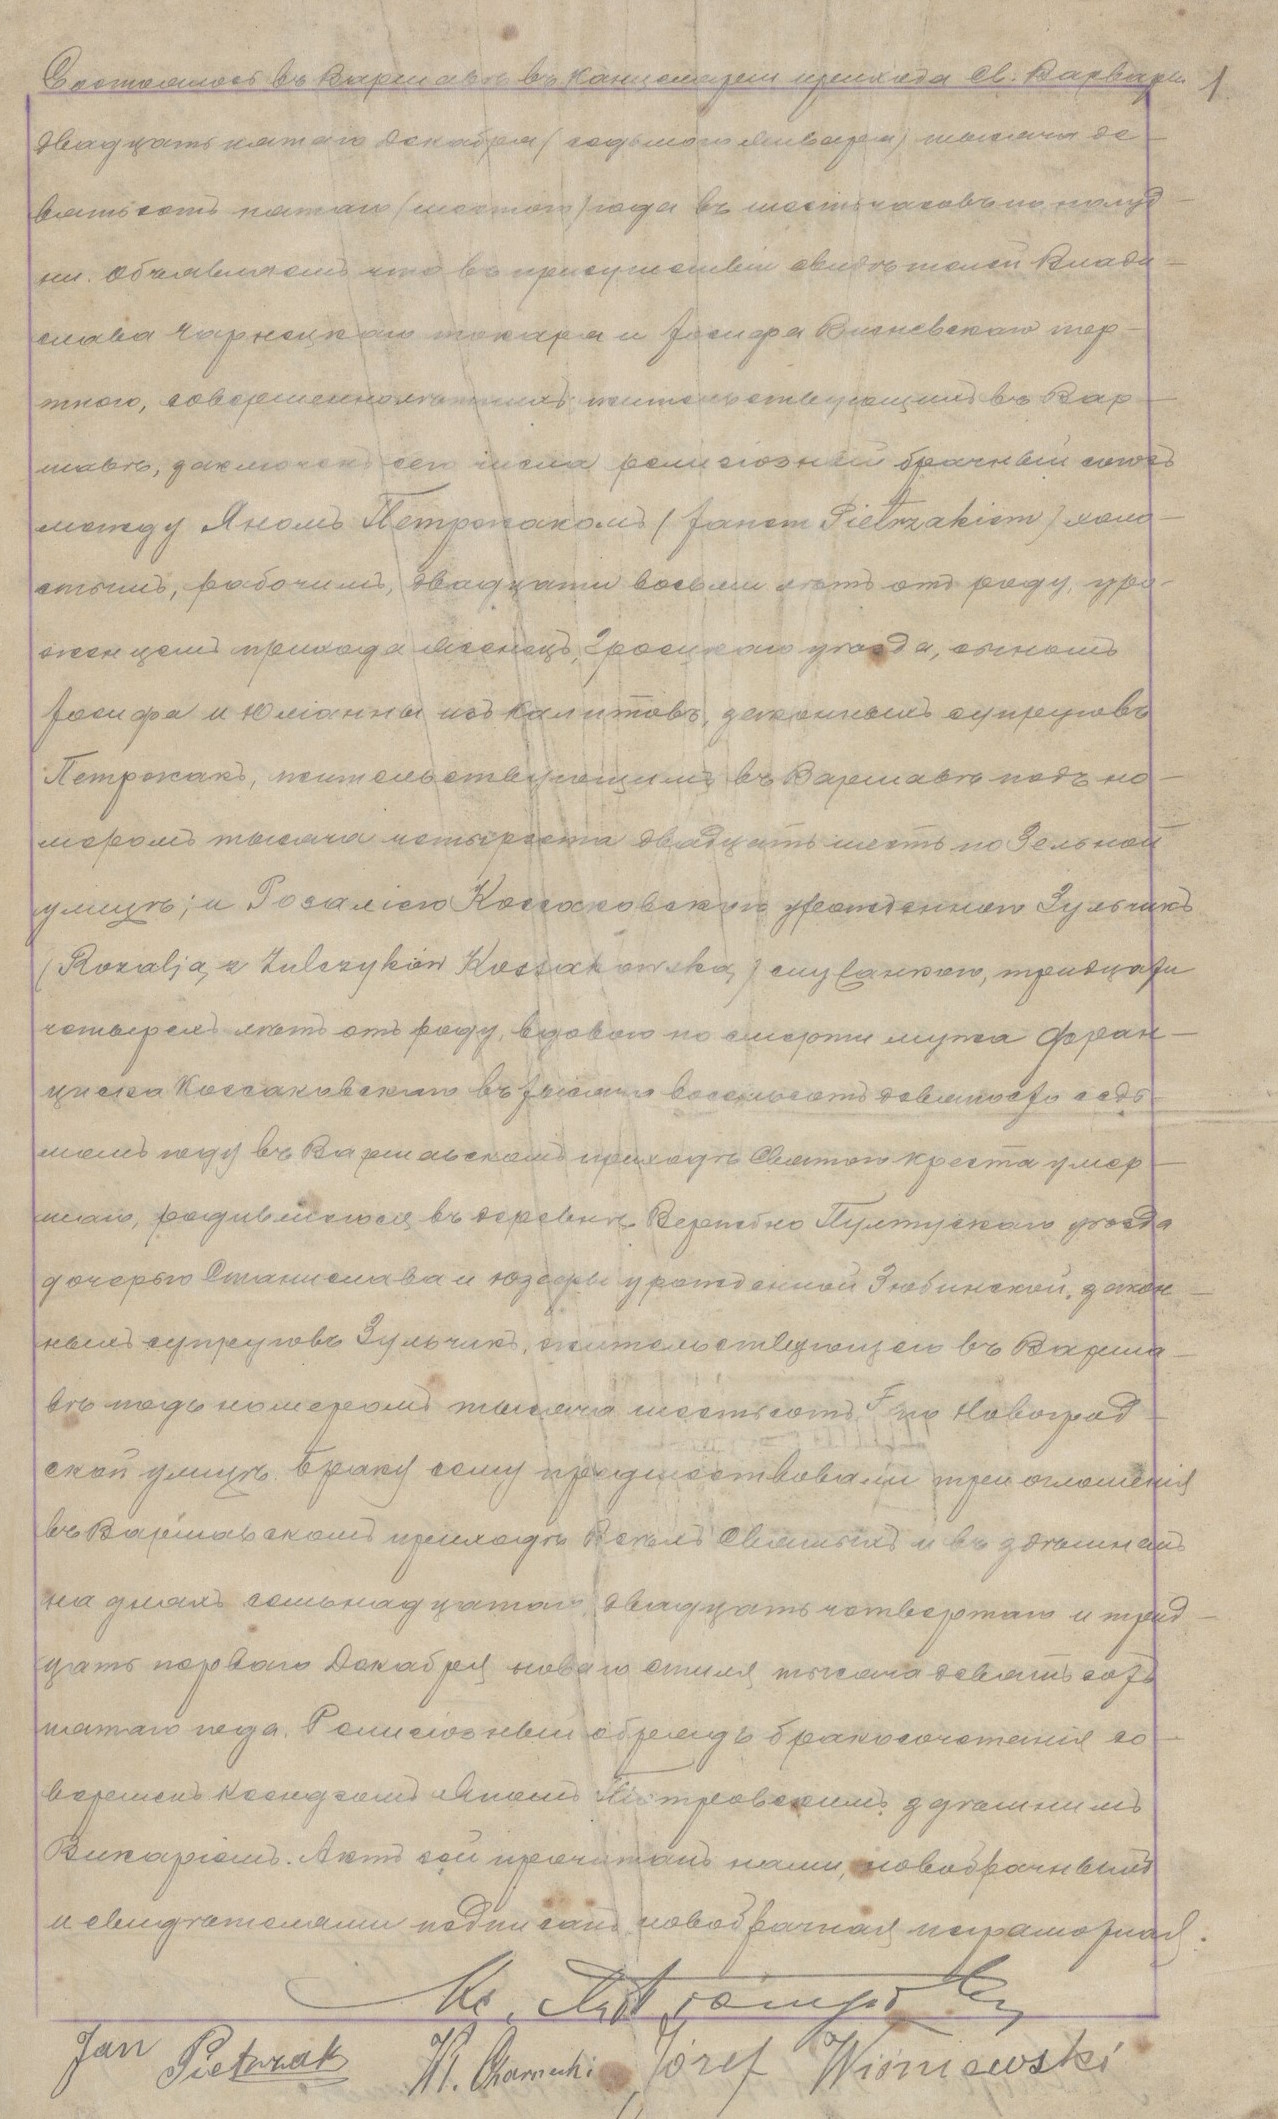 Состоялось въ Варшавѣ въ Канцеляріи прихода Св. Варвары 1
двадцать пятаго Декабря (седьмого Января) тысяча де-
вятьсотъ пятаго (шестого) года въ шесть часовъ по полуд-
ни. Объявляемъ что въ присутствіи свидѣтелей Влади-
слава Чарнецкаго токаря и Іосифа Висневскаго пор-
тного, совершеннолѣтнихъ жительствующихъ въ Вар-
шавѣ, заключенъ сего числа религіозный брачный союзъ
между Яномъ Петржакомъ (Janem Pietrzakiem) холо-
стымъ, рабочимъ, двадцати восьми лѣтъ отъ роду, уро-
женцемъ прихода Ясенецъ, Гроецкаго уѣзда, сыномъ
Іосифа и Юліанны изъ Калитовъ, законныхъ супруговъ
Петржакъ, жительствующимъ въ Варшавѣ подъ но-
меромъ тысяча четыреста двадцать шесть по Зельной
улицѣ; и Розаліею Коссаковскою урожденною Зульчикъ
(Rozalją z Zulczyków Kossakowską) служанкою, тридцати
четырехъ лѣтъ отъ роду, вдовою по смерти мужа Фран-
циска Коссаковскаго въ тысяча восемьсотъ девяносто седь-
момъ году въ Варшавскомъ приходѣ Святого Креста умер-
шаго, родившеюся въ деревнѣ Пултускаго уѣзда
дочерью Станислава и Юзефы урожденной Зюбинской, закон-
ныхъ супруговъ Зульчикъ, жительствующею въ Варша-
вѣ подъ номеромъ тысяча шестьсотъ F по Новоград-
ской улицѣ. Браку сему предшествовали три оглашенія
въ Варшавскомъ приходѣ Всѣхъ Святыхъ и въ здѣшнемъ
на дняхъ семьнадцатаго, двадцать четвертаго и трид-
цать перваго Декабря новаго стиля тысяча девятьсотъ
пятаго года. Религіозный обрядъ бракосочетанія со-
вершенъ ксендзомъ Яномъ Піотровскимъ здѣшнимъ
Викаріемъ. Актъ сей прочитанъ нами, новобрачнымъ
и свидѣтелями подписанъ, новобрачная неграмотная.
Jan Pietrzak Wł. Czarnecki Józef Wiśniewski